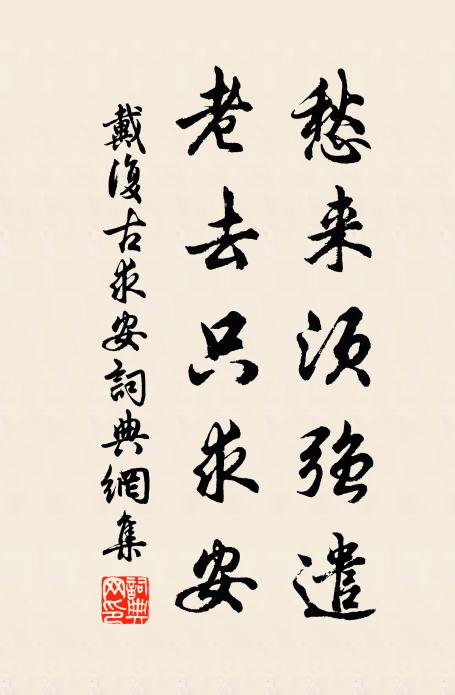 愁来須強遣
老去只求安
戴復古求安詞典網集
詞典網印